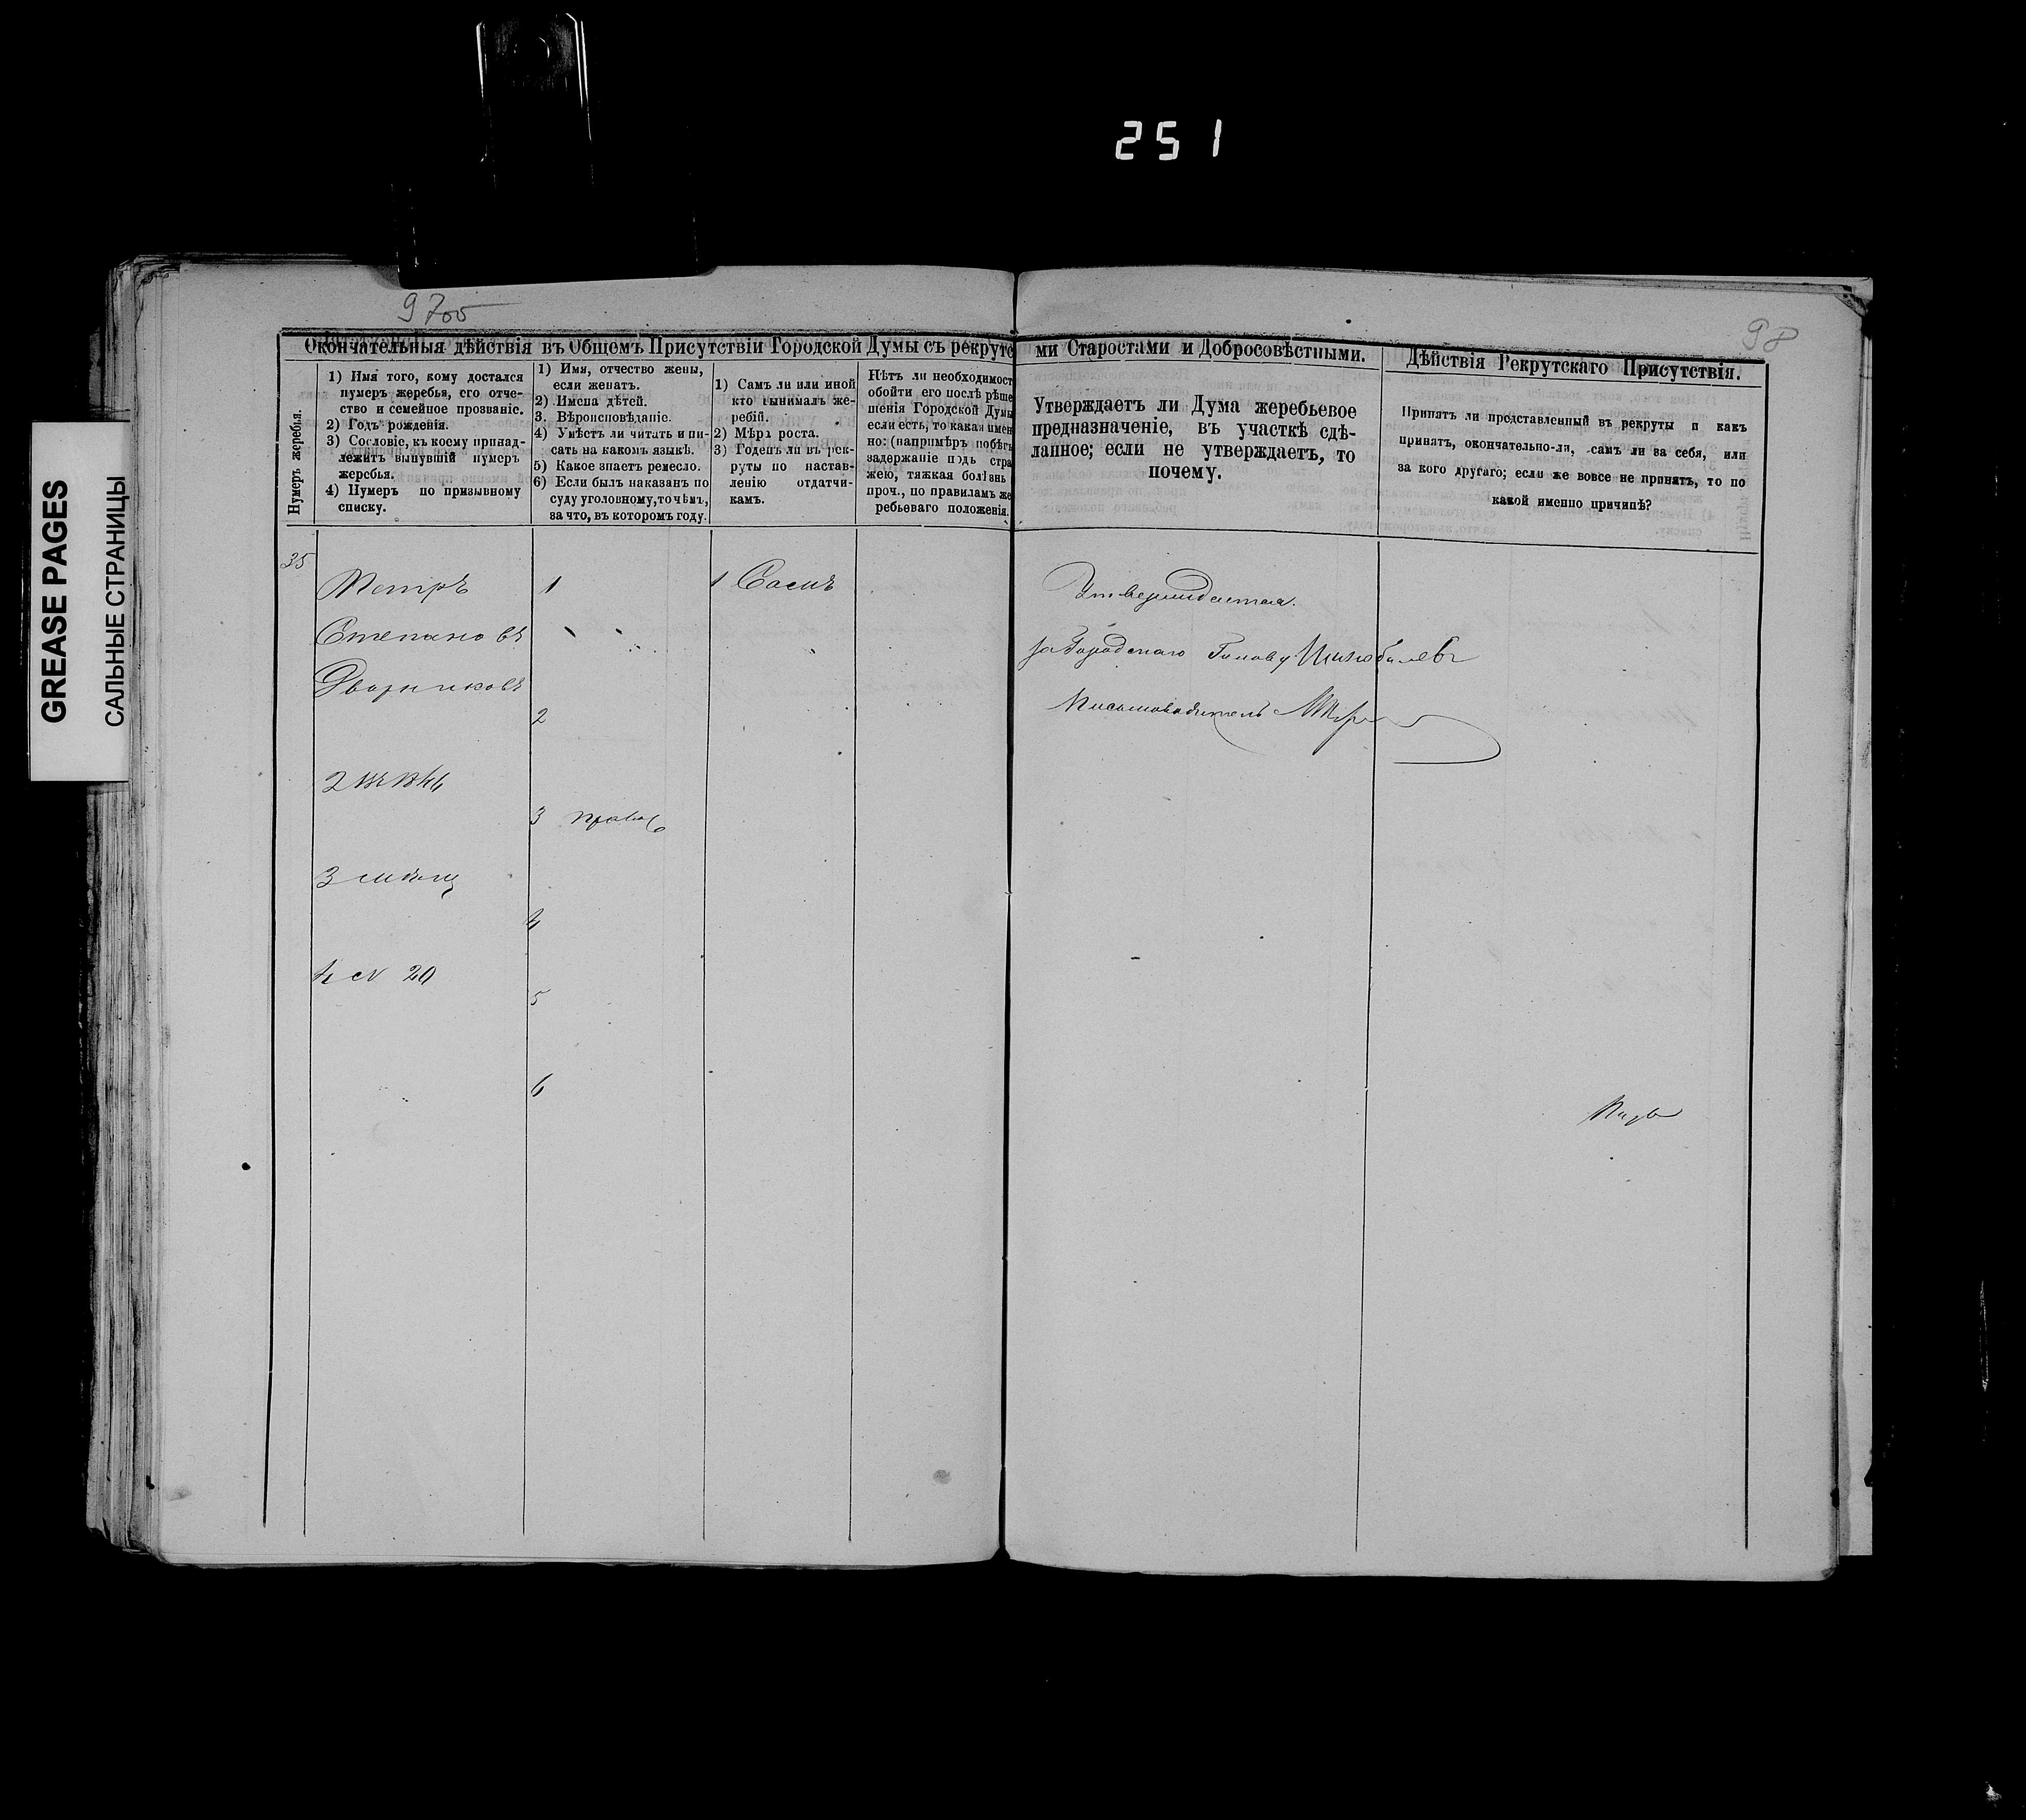 251
GREASE PAGES
САЛЬНЫЕ СТРАНИЦЫ
97об
98
Окончательныя дѣйствія въ Общемъ Присутствіи Городской Думы съ рекрутс
ми Старостами и Добросовѣстными.
Дѣйствія Рекрутскаго Присутствія.
Нумеръ жеребья.
1) Имя того, кому достался
нумеръ жеребья, его отче-
ство и семейное прозваніе.
2) Годъ рожденія.
3) Сословіе, къ коему принад-
лежитъ вынувшій нумеръ
жеребья.
4) Нумеръ по призывному
списку.
1) Имя, отчество жены,
если женатъ.
2) Имена дѣтей.
3. Вѣроисповѣданіе.
4) Умѣетъ ли читать и пи-
сать на какомъ языкѣ.
5) Какое знаетъ ремесло.
6) Если былъ наказанъ по
суду уголовному, то чѣмъ,
за что, въ которомъ году.
1) Самъ ли или иной
кто вынималъ же-
ребій.
2) Мѣра роста.
3) Годенъ ли въ рек-
руты по настав-
ленію отдатчи-
камъ.
Нѣтъ ли необходимост
обойти его послѣ рѣше
шенія Городской Думы
если есть, то какая имен
но: (напримѣръ побѣгъ
задержаніе подъ стра
жею, тяжкая болѣзнь
проч., по правиламъ же
ребьеваго положенія.
Утверждаетъ ли Дума жеребьевое
предназначеніе, въ участкѣ сдѣ-
ланное; если не утверждаетъ, то
почему.
Принятъ ли представленный въ рекруты и какъ
принятъ, окончательно-ли, самъ ли за себя, или
за кого другаго; если же вовсе не принятъ, то по
какой именно причинѣ?
35
Петръ
Степановъ
Дворниковъ
2
3 мѣщ
4 № 20
1
2
3 правос
4
5
6
1 Самъ
Утверждается.
за Городскаго Голову
Письмоводитель